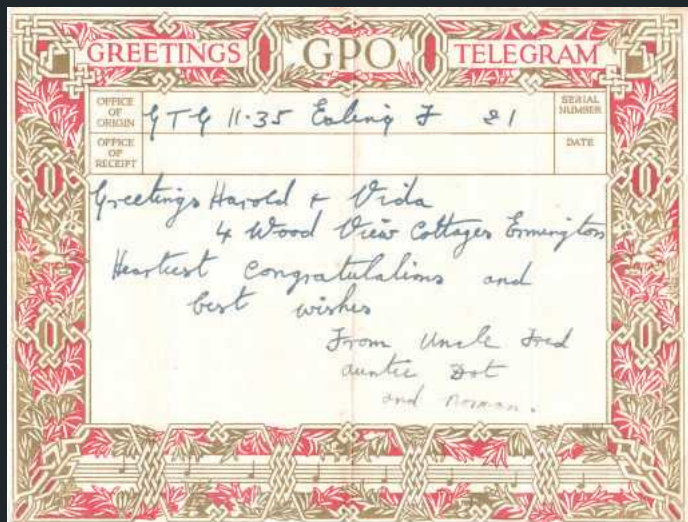 GREETINGS GPO TELEGRAM
OFFICE OF ORIGIN
GTG 11.35 Ealing F 21
SERIAL NUMBER
OFFICE OF RECEIPT
DATE
Greetings Harold + Vida
4 Wood View Cottages Ermington
Heartiest congratulations and
best wishes
From Uncle Fred
auntie Dot
and Norman.